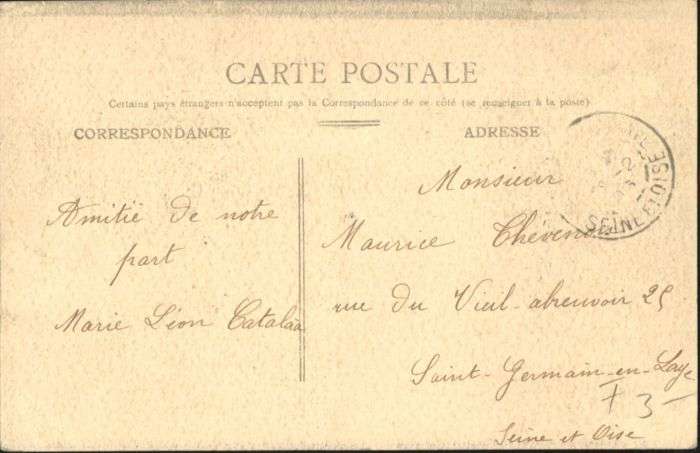 CARTE POSTALE
Certains pays étrangers n'acceptent pas la Correspondance de ce côté (se renseigner à la poste)
CORRESPONDANCE
Amitié de notre
part
Marie Léon Catalaa
ADRESSE
Monsieur
Maurice
rue du Vieil-abreuvoir 25
Saint-Germain-en-Laye
Seine et Oise
3
SEINE ET OISE